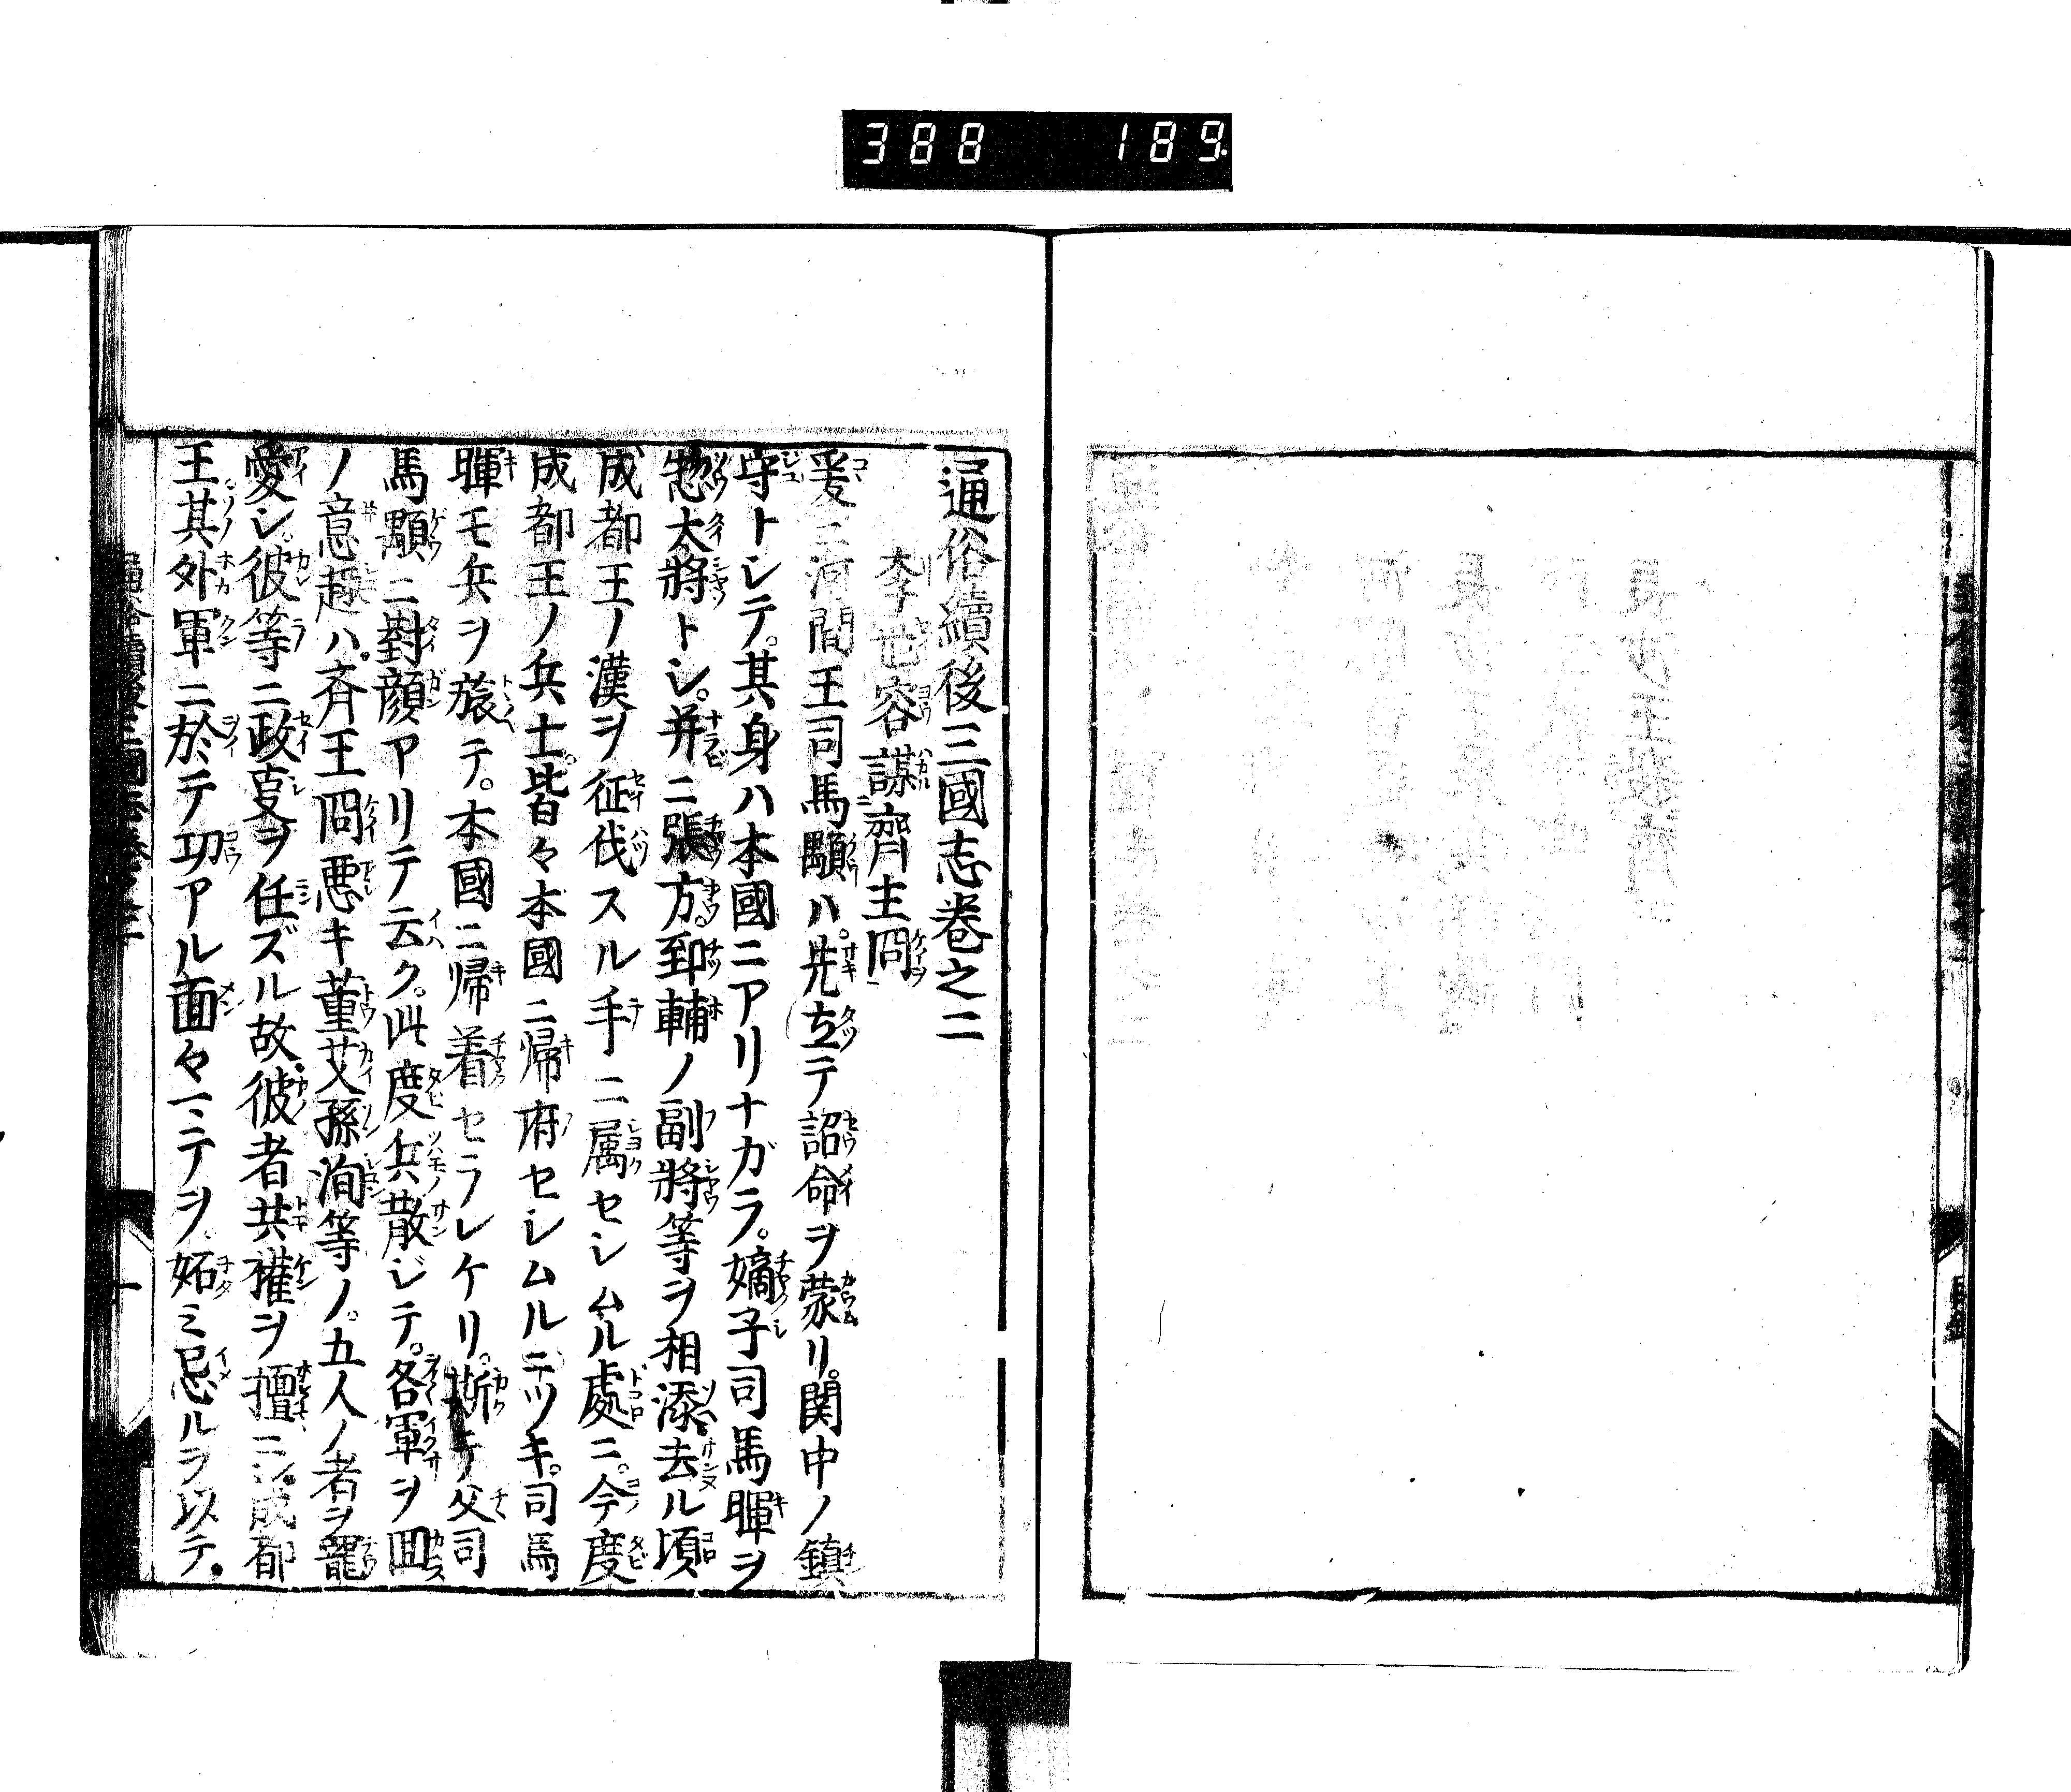 388 189
通俗續後三國志卷之二
李世容謀齊主冏
爰ニ河間王司馬顒ハ。先立テ詔命ヲ蒙リ。関中ノ鎮
守トシテ。其身ハ本國ニアリナガラ。嫡子司馬暉ヲ
惣太將トシ。并ニ張方。郅輔ノ副將等ヲ相添去ル頃
成都王ノ漢ヲ征伐スル手ニ属セシムル處ニ。今度
成都王ノ兵士。皆々本國ニ帰府セシムルニツキ。司馬
暉モ兵ヲ旅テ。本國ニ帰着セラレケリ。斯テ父司
馬顒ニ對顔アリテ云ク。此度兵散ジテ。各軍ヲ囬
ノ意趣ハ。斉王冏悪キ董艾孫洵等ノ。五人ノ者ヲ寵
愛シ。彼等ニ政叓ヲ任ズル故。彼者共權ヲ擅ニシ。成都
王其外軍ニ於テ功アル面々ニテヲ妬ミ忌ルヲ以テ。